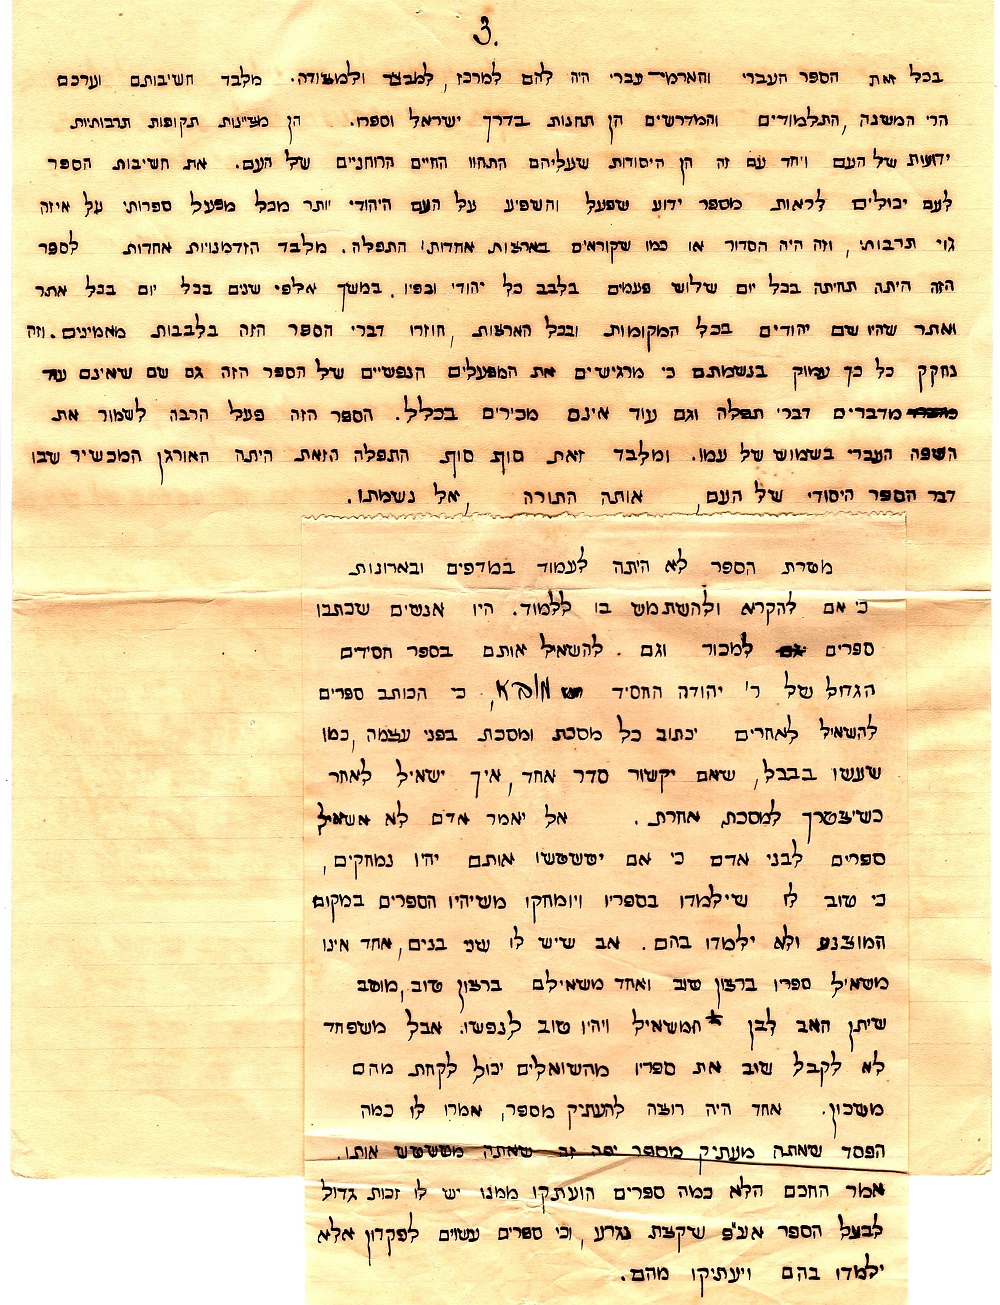 3.
בכל זאת הספר העברי והארמי־עברי היה להם למרכז, למבצר ולמצודה. מלבד חשיבותם וערכם
הרי המשנה, התלמודים והמדרשים הן תחנות בדרך ישראל וספרו. הן מציינות תקופות תרבותיות
ידועות של העם ויחד עם זה הן היסודות שעליהם התהוו החיים הרוחניים של העם. את חשיבות הספר
לעם יכולים לראות מספר ידוע שפעל והשפיע על העם היהודי יותר מכל מפעל ספרותי על איזה
גוי תרבותי, וזה היה הסדור או כמו שקוראים בארצות אחדות: התפלה. מלבד הזדמנויות אחדות לספר
הזה היתה תחיתה בכל יום שלוש פעמים בלבב כל יהודי ובפיו. במשך אלפי שנים בכל יום בכל אתר
ואתר שהיו שם יהודים בכל המקומות ובכל הארצות, חוזרו דברי הספר הזה בלבבות מאמינים. וזה
נחקק כל כך עמוק בנשמתם כי מרגישים את המפעלים הנפשיים של הספר הזה גם שם שאינם עוד
מדברים דברי תפלה וגם עוד אינם מכירים בכלל. הספר הזה פעל הרבה לשמור את
השפה העברי בשמוש של עמו. ומלבד זאת סוף סוף התפלה הזאת היתה האורגן המכשיר שבו
דבר הספר היסודי של העם, אותה התורה, אל נשמתו.
מטרת הספר לא היתה לעמוד במדפים ובארונות
כי אם להקרא ולהשתמש בו ללמוד. היו אנשים שכתבו
ספרים גם למכור וגם להשאיל אותם. בספר חסידים
הגדול של ר' יהודה החסיד מובא, כי הכותב ספרים
להשאיל לאחרים יכתוב כל מסכת ומסכת בפני עצמה, כמו
שעשו בבבל, שאם יקשור סדר אחד, איך ישאיל לאחר
כשיצטרך למסכת אחרת. אל יאמר אדם לא אשאיל
ספרים לבני אדם כי אם יטשטשו אותם יהיו נמחקים,
כי טוב לו שילמדו בספריו וימחקו משיהיו הספרים במקום
המוצנע ולא ילמדו בהם. אב שיש לו שני בנים, אחד אינו
משאיל ספרו ברצון טוב ואחד משאילם ברצון טוב, מוטב
שיתן האב לבן המשאיל ויהיו טוב לנפשו. אבל משפחד
לא לקבל שוב את ספריו מהשואלים יכול לקחת מהם
משכון. אחד היה רוצה להעתיק מספר, אמרו לו כמה
הפסד שאתה מעתיק מספר יפה זה שאתה מטשטש אותו.
אמר החכם הלא כמה ספרים הועתקו ממנו יש לו זכות גדול
לבעל הספר אע"פ שקצת נגרע, וכי ספרים עשוים לפקדון אלא
ילמדו בהם ויעתיקו מהם.